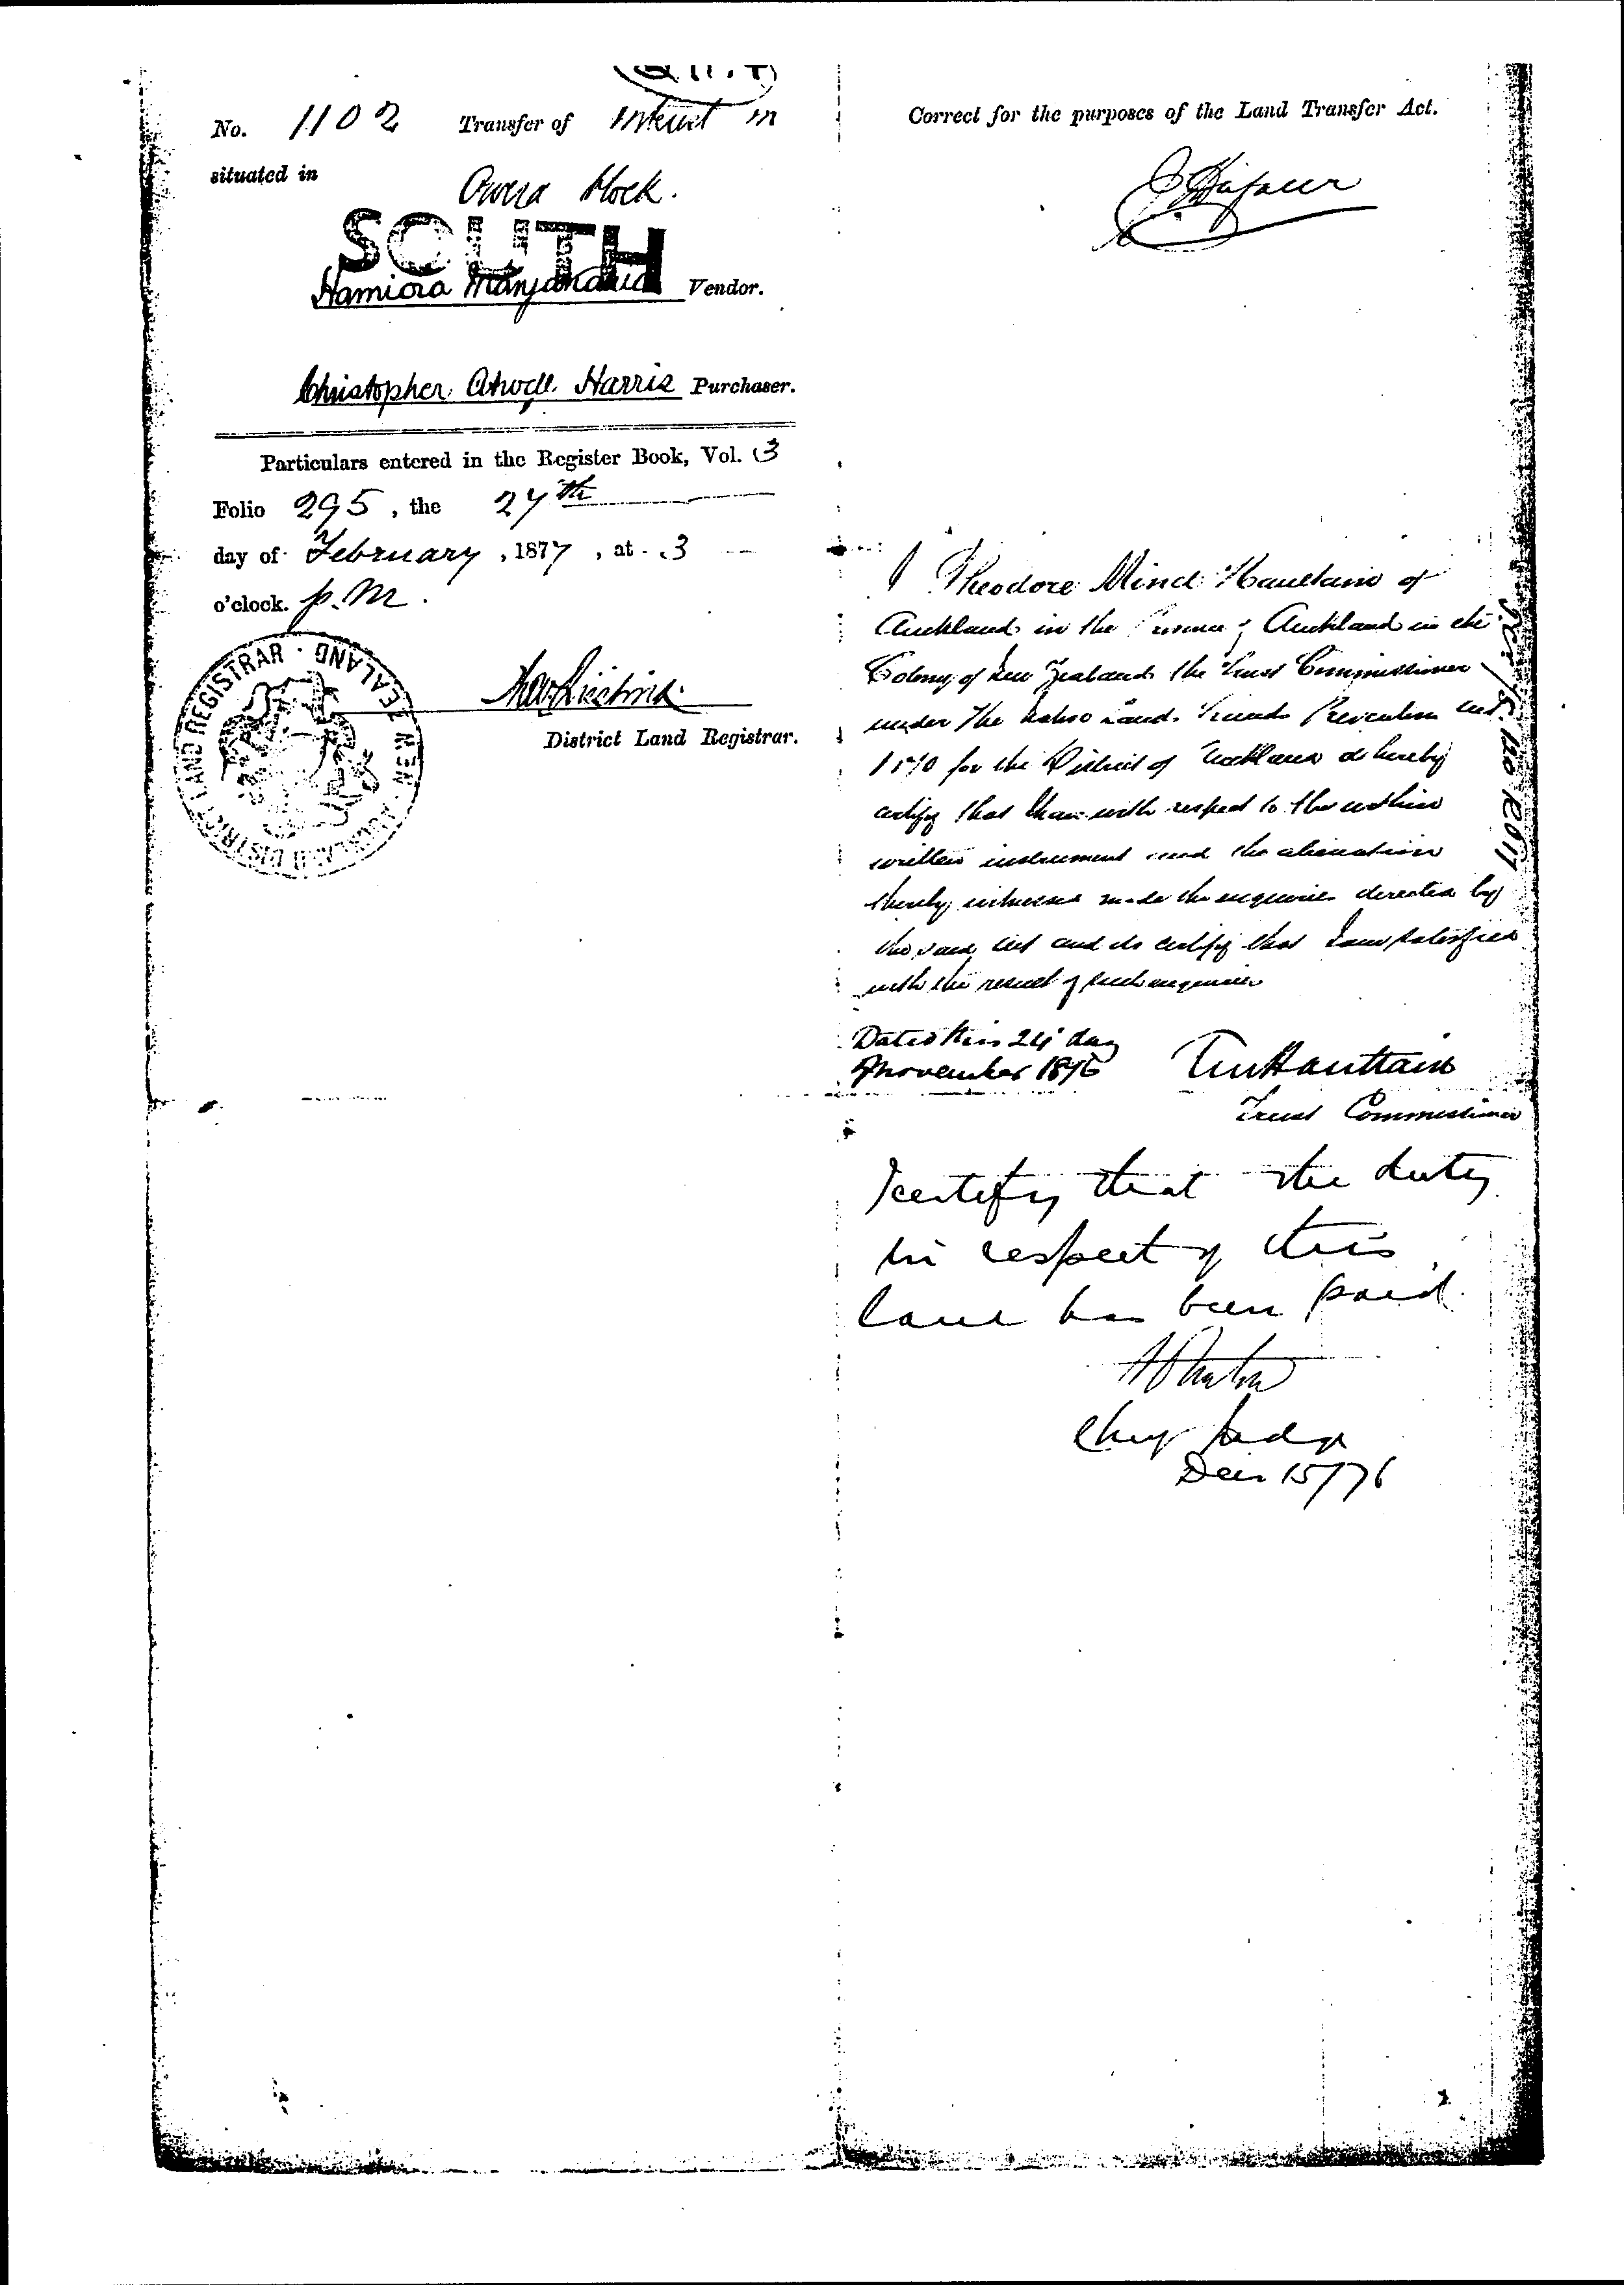 No. 1102 Transfer of Interest in
situated in
Owera block.
SOUTH
Hamiora Vendor.
Christopher Harris Purchaser.
Particulars entered in the Register Book, Vol. 3
Folio 295, the 27th
day of February, 1877, at 3
o'clock. p.m.
DISTRICT LAND REGISTRAR · AUCKLAND · NEW ZEALAND
District Land Registrar.
Correct for the purposes of the Land Transfer Act.
I Theodore Minet Haultain of
Auckland in the Province of Auckland in the
Colony of New Zealand the Trust Commissioner
under The Native Lands Frauds Prevention Act
1870 for the District of Auckland do hereby
certify that I have with respect to the within
written instrument and the alienation
thereby witnessed made the enquiries directed by
the said Act and do certify that I am satisfied
with the result of such enquiries
Dated this 24 day
of November 1876 TM Haultain
Trust Commissioner
I certify that the duty
in respect of this
land has been paid.
Chief Judge
Dec 15/76